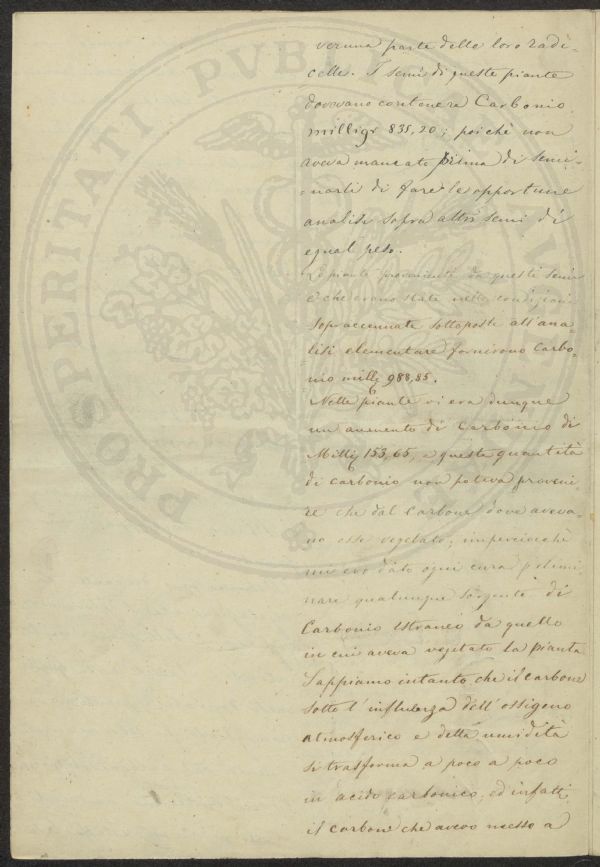 PROSPERITATI PVBLICAE
veruna parte delle loro radi-
celle. I semi di queste piante
dovevano contenere Carbonio
milligr 835,20; poichè non
aveva mancato prima di semi-
narli di fare le opportune
analisi sopra altri semi di
egual peso.
Le piante provenienti da questi semi
e che erano state nelle condizioni
Sopraccennate sottoposte all'ana-
lisi elementare fornirono Carbo-
nio millig 988,85.
Nelle piante vi era dunque
un aumento di Carbonio di
Millig 153,65, e queste quantità
di carbonio non poteva proveni-
re che dal Carbone dove aveva-
no esse vegetato; imperciocchè
mi ero dato ogni cura
nare qualunque sorgente di
Carbonio Estraneo da quello
in cui aveva vegetato la pianta
Sappiamo intanto che il carbone
sotto l'influenza dell'ossigeno
atmosferico e della umidità
si trasforma a poco a poco
in acido carbonico, ed infatti
il carbone che avevo messo a